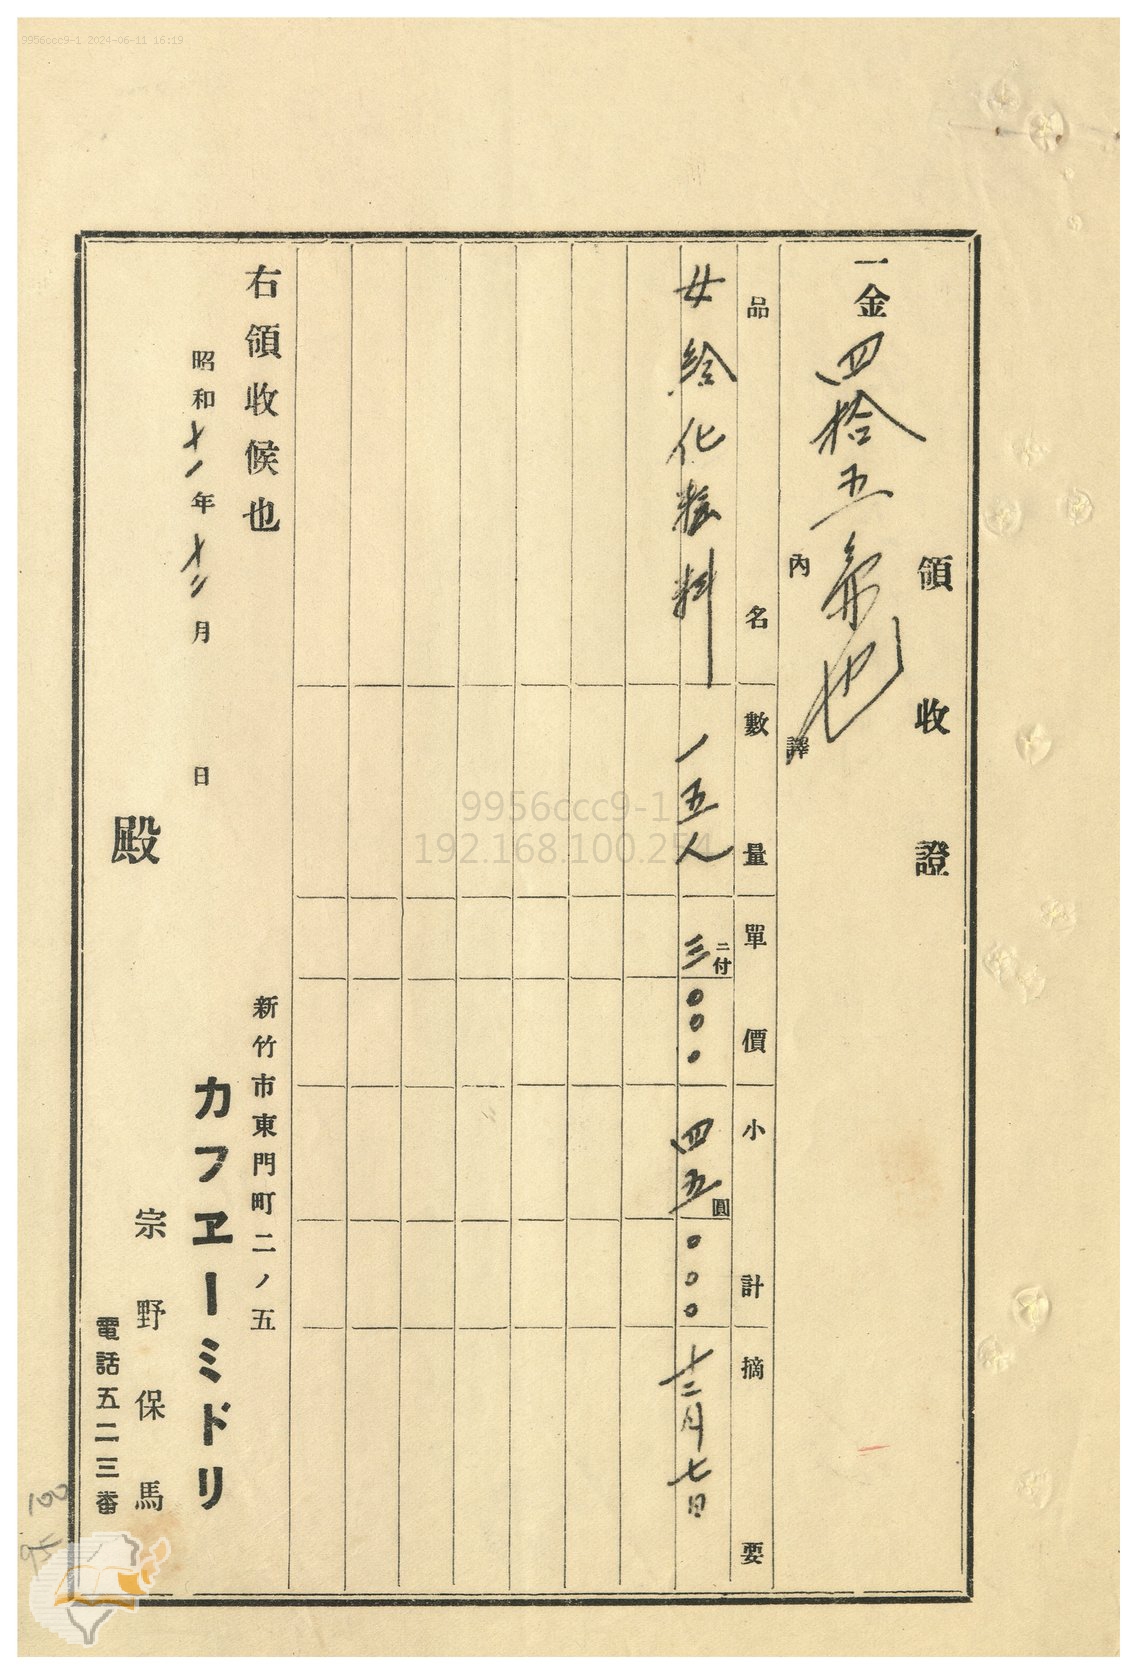 9956ccc9-1 2024-06-11 16:19
領收證
一金四拾五円也
內譯
品名 數量 單價 小計 摘要
女給化粧料 一五人 三ニ付〇〇〇 四五圓〇〇〇 十二月七日
右領收候也
昭和十一年十二月 日
新竹市東門町二ノ五
カフヱーミドリ
宗野保馬
電話五二三番
殿
9956ccc9-1
192.168.100.254
100